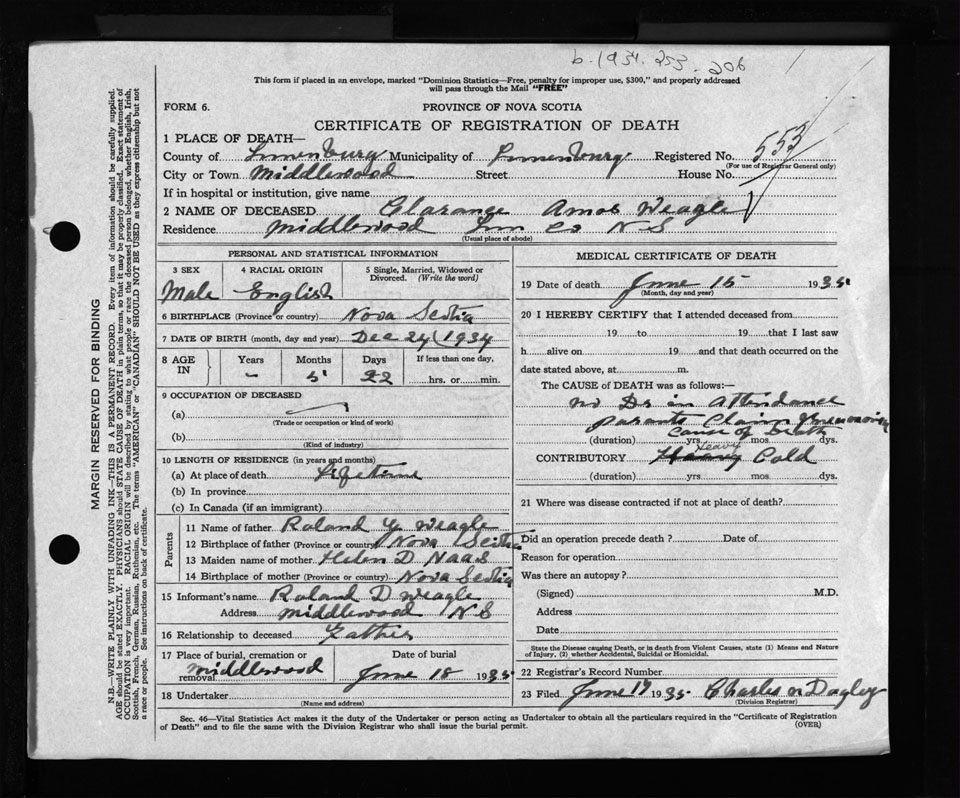 b. 1934. 253. 206
This form if placed in an envelope, marked "Dominion Statistics—Free, penalty for improper use, $300," and properly addressed
will pass through the Mail "FREE"
FORM 6.
PROVINCE OF NOVA SCOTIA
CERTIFICATE OF REGISTRATION OF DEATH
1 PLACE OF DEATH—
County of Lunenburg Municipality of Lunenburg Registered No. 553
(For use of Registrar General only)
City or Town Middlewood Street House No.
If in hospital or institution, give name
2 NAME OF DECEASED Clarance Amos Weagle
Residence Middlewood Lun Co N S
(Usual place of abode)
PERSONAL AND STATISTICAL INFORMATION
3 SEX 4 RACIAL ORIGIN 5 Single, Married, Widowed or
Divorced. (Write the word)
Male English
6 BIRTHPLACE (Province or country) Nova Scotia
7 DATE OF BIRTH (month, day and year) Dec 24 1934
8 AGE IN Years Months Days If less than one day,
– 5 22 hrs. or min.
9 OCCUPATION OF DECEASED
(a)
(Trade or occupation or kind of work)
(b)
(Kind of industry)
10 LENGTH OF RESIDENCE (in years and months)
(a) At place of death Lifetime
(b) In province
(c) In Canada (if an immigrant)
Parents
11 Name of father Roland Weagle
12 Birthplace of father (Province or country) Nova Scotia
13 Maiden name of mother Helen D Naas
14 Birthplace of mother (Province or country) Nova Scotia
15 Informant's name Roland D Weagle
Address Middlewood N S
16 Relationship to deceased Father
17 Place of burial, cremation or
removal Middlewood
Date of burial
June 18 1935
18 Undertaker
(Name and address)
MEDICAL CERTIFICATE OF DEATH
19 Date of death June 15 1935
(Month, day and year)
20 I HEREBY CERTIFY that I attended deceased from
19 to 19 that I last saw
h alive on 19 and that death occurred on the
date stated above, at m.
The CAUSE OF DEATH was as follows:—
no Dr in Attendance
parents Claim Pneumonia
Cause of Death
(duration) yrs. mos. dys.
Heavy
CONTRIBUTORY Heavy Cold
(duration) yrs. mos. dys.
21 Where was disease contracted if not at place of death?
Did an operation precede death? Date of
Reason for operation
Was there an autopsy?
(Signed) M.D.
Address
Date
State the Disease causing Death, or in Death from Violent Causes, state (1) Means and Nature
of Injury, (2) whether Accidental, Suicidal or Homicidal.
22 Registrar's Record Number
23 Filed June 1935 Charles N Dagley
(Division Registrar)
Sec. 46—Vital Statistics Act makes it the duty of the Undertaker or person acting as Undertaker to obtain all the particulars required in the "Certificate of Registration
of Death" and to file the same with the Division Registrar who shall issue the burial permit.
(OVER)
MARGIN RESERVED FOR BINDING
N.B.—WRITE PLAINLY WITH UNFADING INK—THIS IS A PERMANENT RECORD. Every item of information should be carefully supplied.
AGE should be stated EXACTLY. PHYSICIANS should STATE CAUSE OF DEATH in plain terms, so that it may be properly classified. Exact statement of
OCCUPATION is very important. RACIAL ORIGIN will be described by stating to what people or race the deceased person belonged, whether English, Irish,
Scottish, French, German, Russian, Ruthenian, etc. The terms "AMERICAN" or "CANADIAN" SHOULD NOT BE USED as they express citizenship but not
a race or people. See instructions on back of certificate.